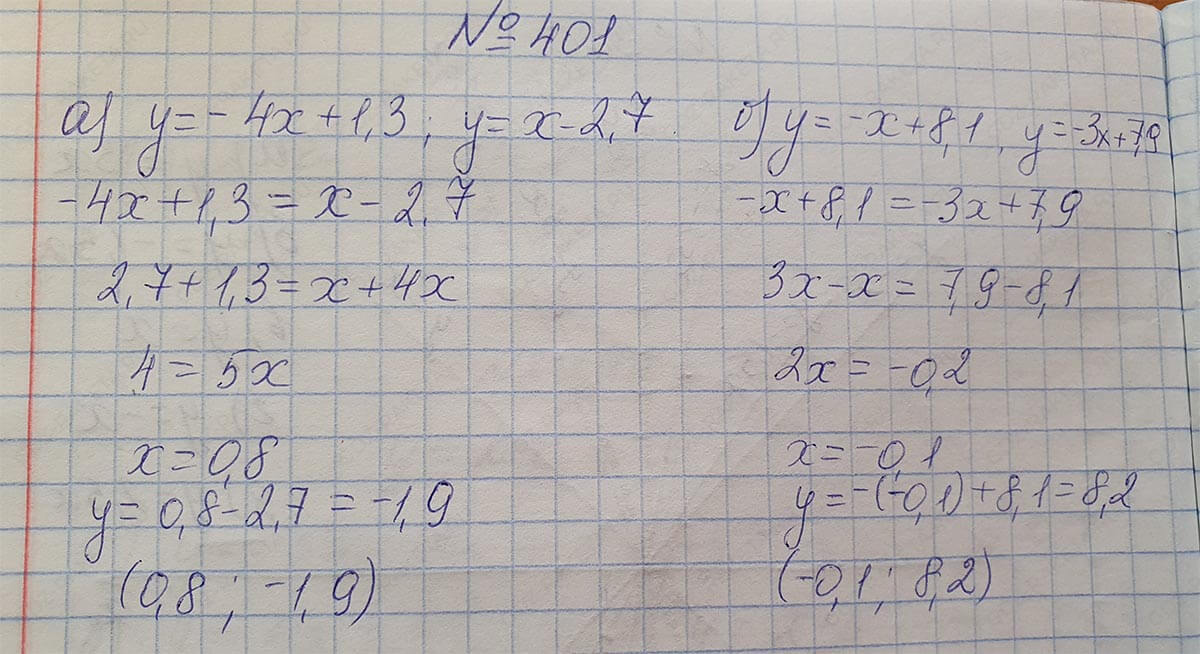 № 401
а) y = -4x + 1,3; y = x - 2,7.
-4x + 1,3 = x - 2,7
2,7 + 1,3 = x + 4x
4 = 5x
x = 0,8
y = 0,8 - 2,7 = -1,9
(0,8 ; -1,9)
б) y = -x + 8,1, y = -3x + 7,9
-x + 8,1 = -3x + 7,9
3x - x = 7,9 - 8,1
2x = -0,2
x = -0,1
y = -(-0,1) + 8,1 = 8,2
(-0,1; 8,2)